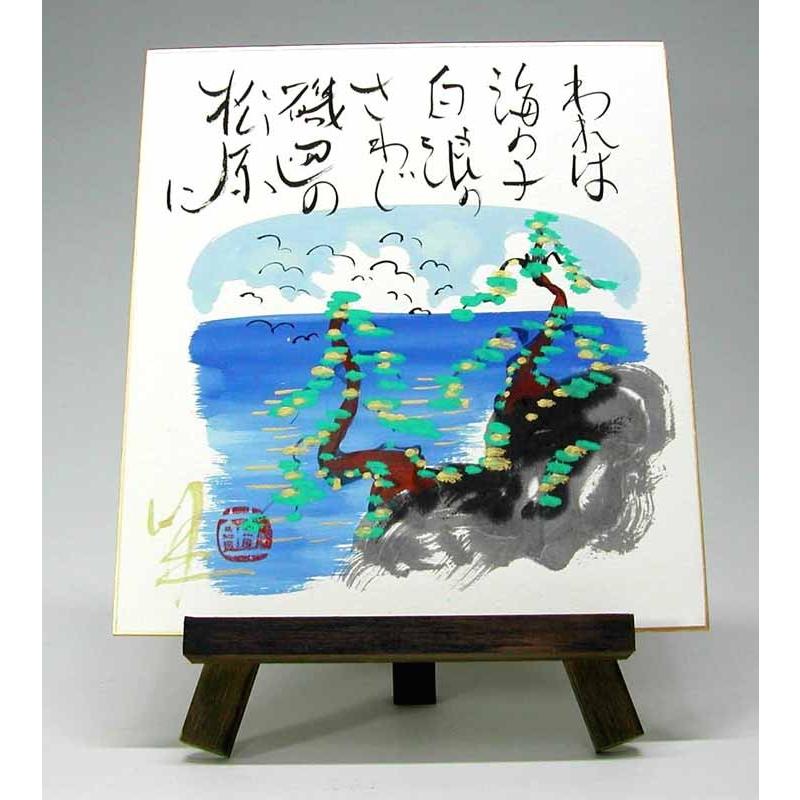 われは
海の子
白浪の
さわぐ
磯辺の
松原に